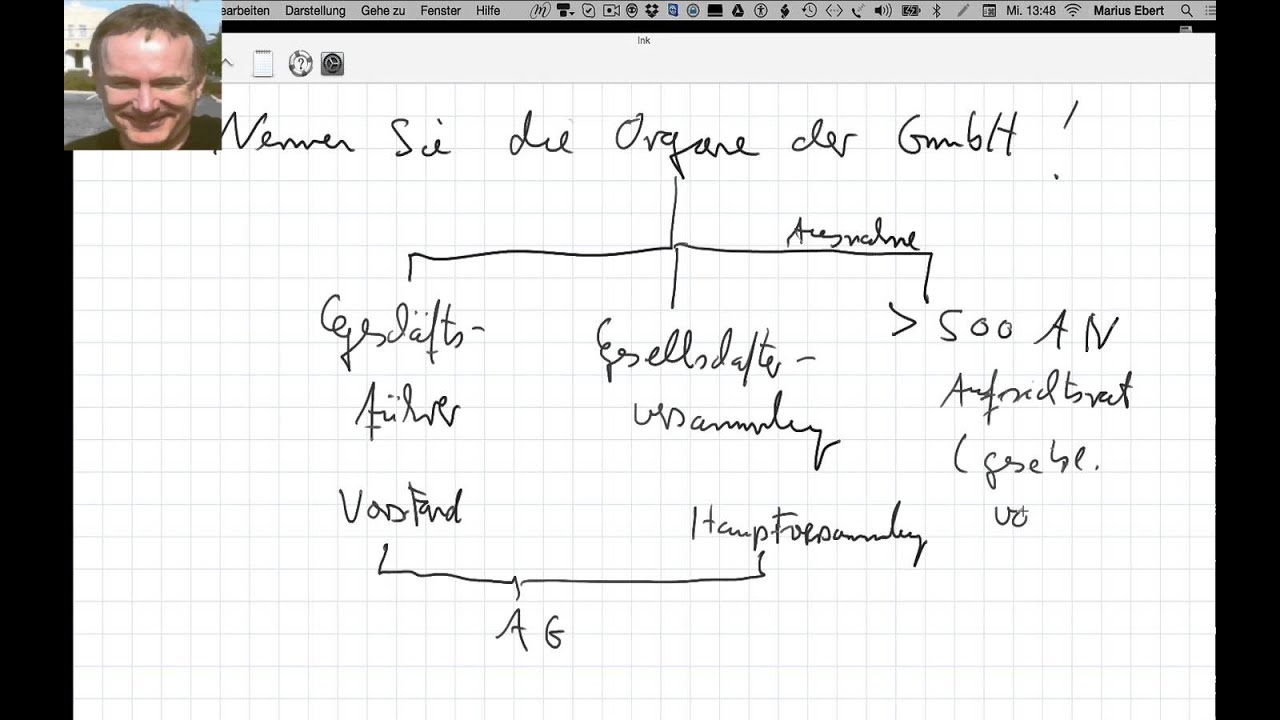 earbeiten Darstellung Gehe zu Fenster Hilfe Mi. 13:48 Marius Ebert
Ink
Nennen Sie die Organe der GmbH !
Ausnahme
Geschäfts-
führer
Gesellschafter-
versammlung
> 500 AN
Aufsichtsrat
(gesetzl.
vo
Vorstand
Hauptversammlung
AG